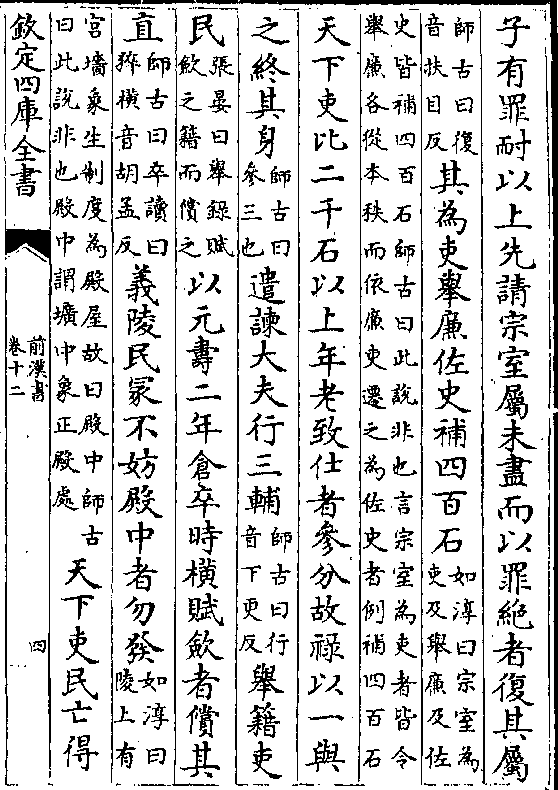 子有罪耐以上先請宗室屬未盡而以罪絕者復其屬
師古曰復音扶目反其為吏舉廉佐史補四百石如淳曰宗室為吏及舉廉及佐
史皆補四百石師古曰此說非也言宗室為吏者皆令舉廉各從本秩而依廉吏遷之為佐史者例補四百石
天下吏比二千石以上年老致仕者參分故祿以一與
之終其身師古曰參三也遣諫大夫行三輔師古曰行音下更反舉籍吏
民張晏曰舉錄賦斂之籍而償之以元壽二年倉卒時橫賦斂者償其
直師古曰卒讀曰猝橫音胡孟反義陵民冢不妨殿中者勿發如淳曰陵上有
宮墻象生制度為殿屋故曰殿中師古曰此說非也殿中謂壙中象正殿處天下吏民亡得
欽定四庫全書
前漢書
卷十二
四